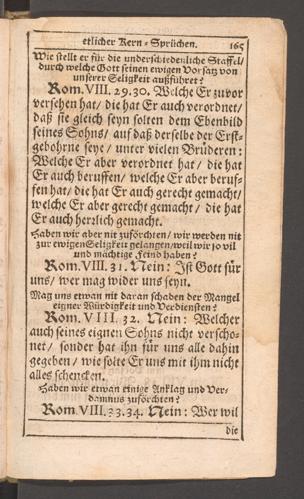 etlicher Kern-Sprüchen. 165
Wie stellt er für die underschiedenliche Staffel/
durch welche Gott seinen ewigen Vorsatz von
unserer Seligkeit außführet?
Rom. VIII. 29.30. Welche Er zuvor
versehen hat/ die hat Er auch verordnet/
daß sie gleich seyn solten dem Ebenbild
seines Sohns/ auf daß derselbe der Erst-
gebohrne seye/ unter vielen Brüderen:
Welche Er aber verordnet hat/ die hat
Er auch beruffen/ welche Er aber beruf-
fen hat/ die hat Er auch gerecht gemacht/
welche Er aber gerecht gemacht/ die hat
Er auch herrlich gemacht.
Haben wir aber nit zuförchten/ wir werden nit
zur ewigen Seligkeit gelangen/ weil wir so vil
und mächtige Feind haben?
Rom. VIII. 31. Nein: Ist Gott für
uns/ wer mag wider uns seyn.
Mag uns etwan nit daran schaden der Mangel
eigner Würdigkeit und Verdiensten?
Rom. VIII. 32. Nein: Welcher
auch seines eignen Sohns nicht verscho-
net/ sonder hat ihn für uns alle dahin
gegeben/ wie solte Er uns mit ihm nicht
alles schencken.
Haben wir etwan einige Anklag und Ver-
damnus zuförchten?
Rom. VIII. 33.34. Nein: Wer wil
die